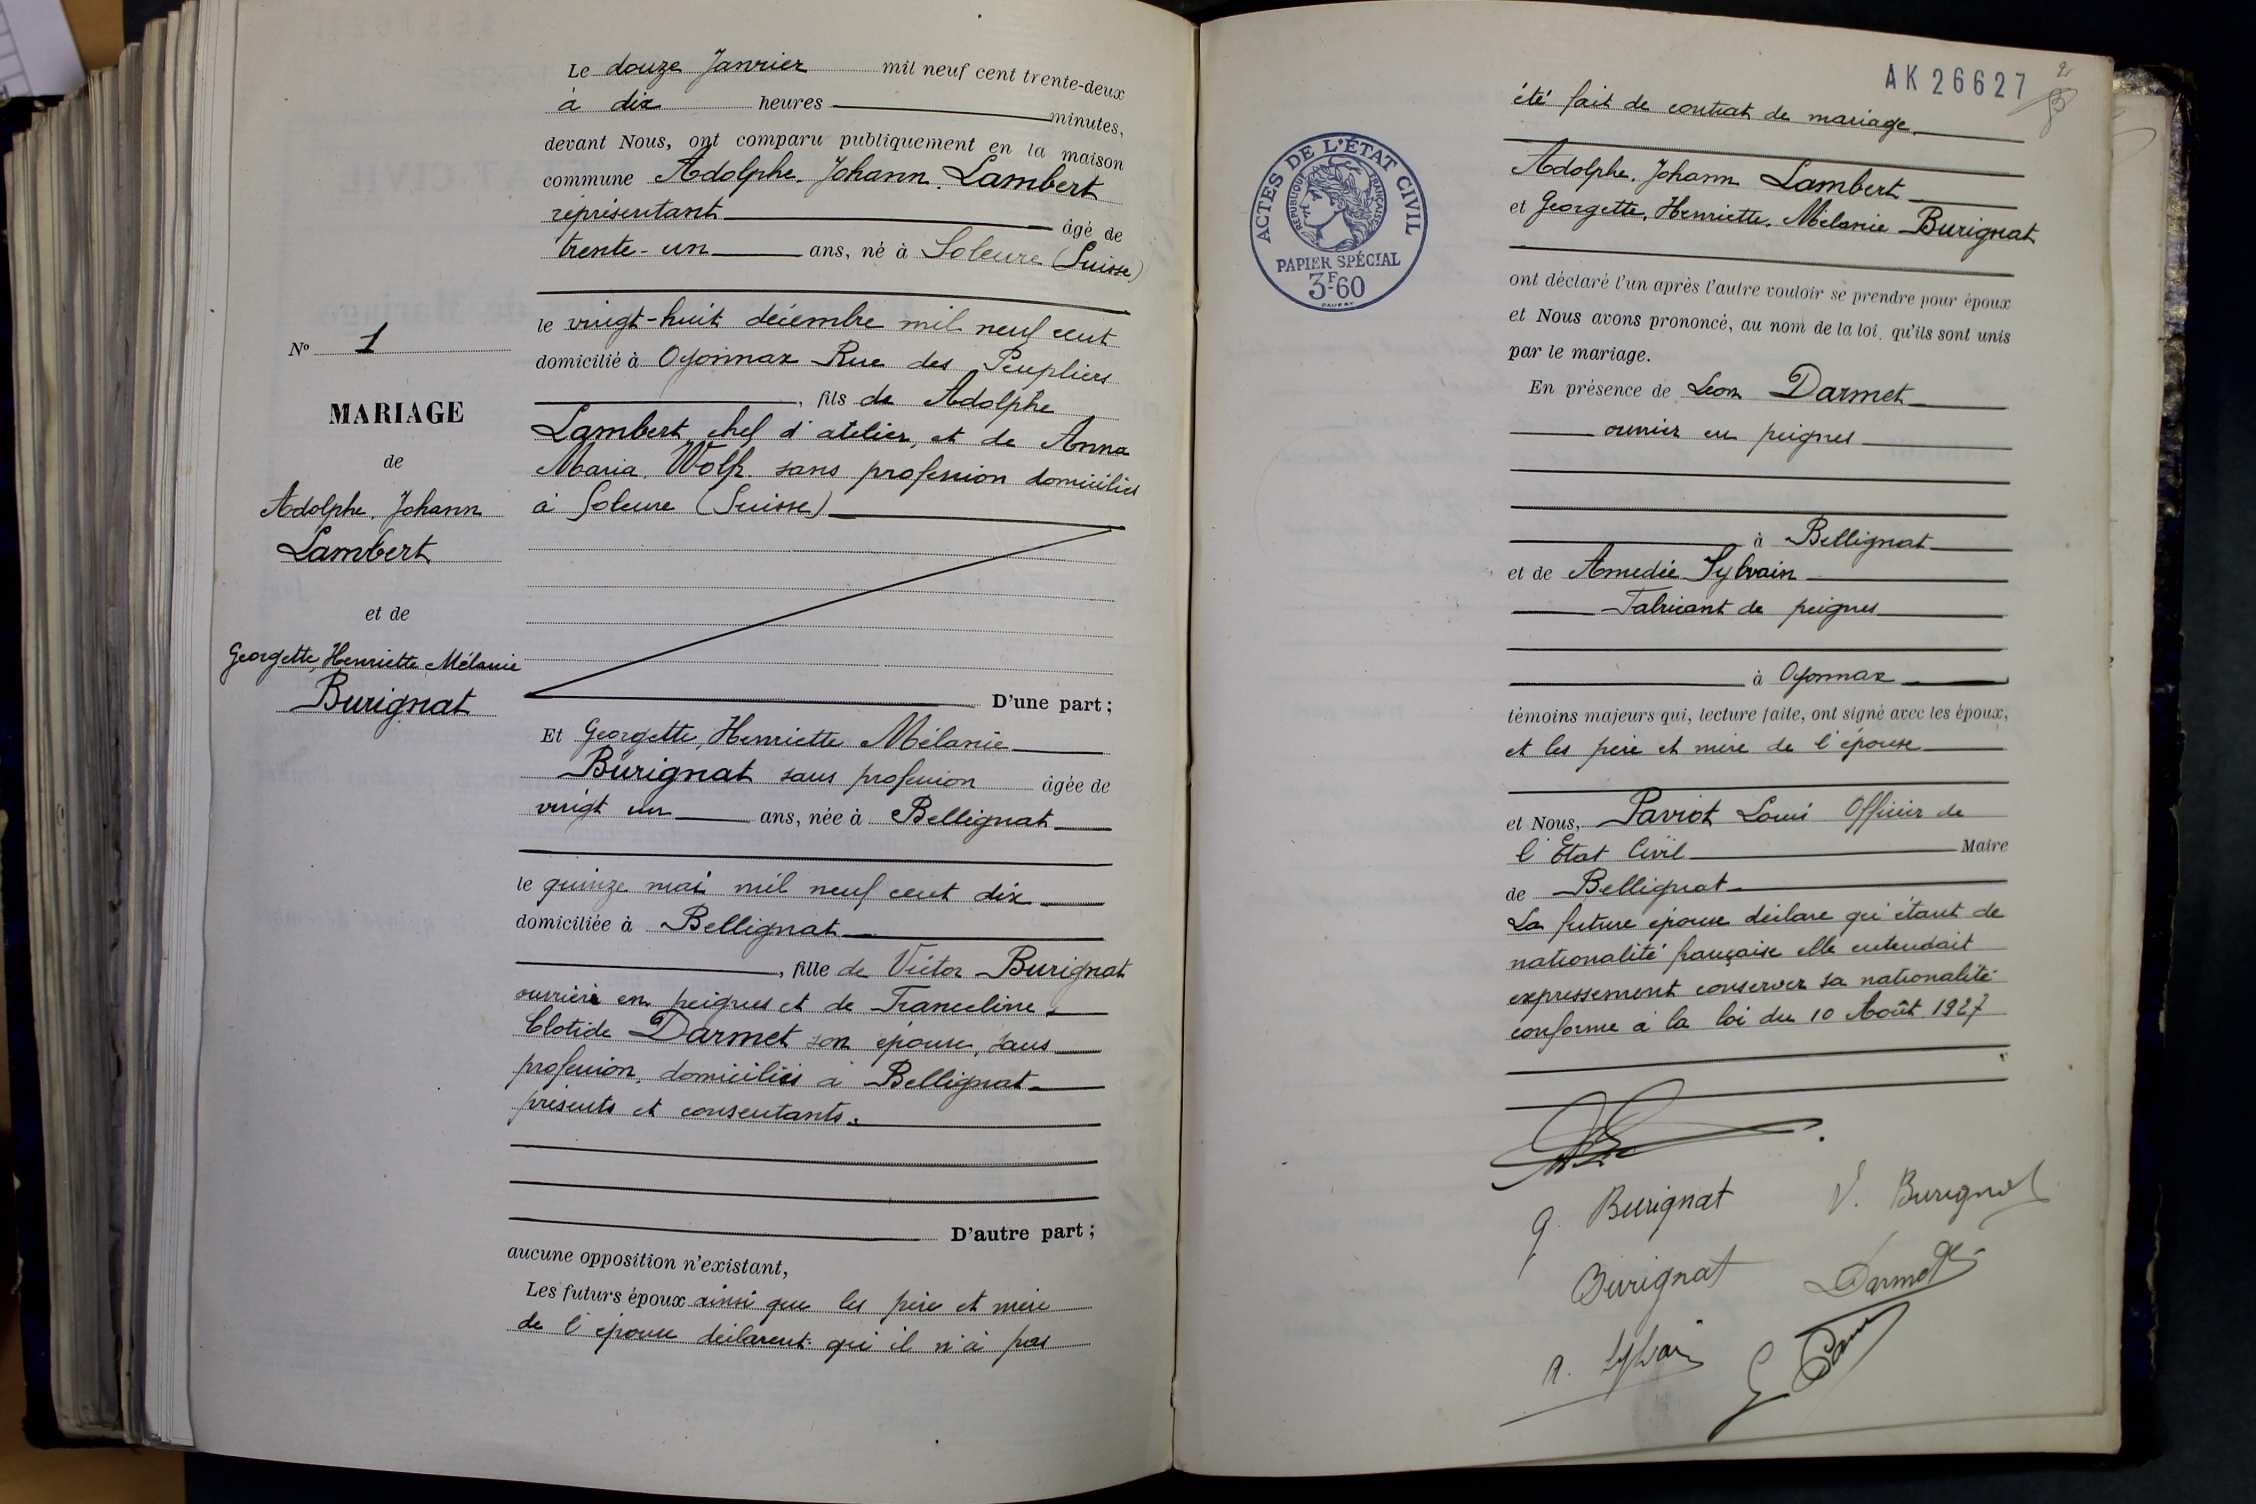 Le douze Janvier mil neuf cent trente-deux
à dix heures minutes,
devant Nous, ont comparu publiquement en la maison
commune Adolphe, Johann, Lambert
représentant âgé de
trente-un ans, né à Soleure (Suisse)
le vingt-huit décembre mil neuf cent
domicilié à Oyonnax Rue des Peupliers
, fils de Adolphe
Lambert, chef d'atelier, et de Anna
Maria, Wolf sans profession domiciliés
à Soleure (Suisse)
D'une part ;
Et Georgette, Henriette Mélanie
Burignat sans profession âgée de
vingt un ans, née à Bellignat
le quinze mai mil neuf cent dix
domiciliée à Bellignat
, fille de Victor Burignat
ouvrier en peignes et de Franceline
Clotide Darmet son épouse, sans
profession, domiciliés à Bellignat
présents et consentants.
D'autre part ;
aucune opposition n'existant,
Les futurs époux ainsi que les père et mère
de l'épouse déclarent qu'il n'a pas
N° 1
MARIAGE
de
Adolphe, Johann
Lambert
et de
Georgette, Henriette, Mélanie
Burignat
AK 26627
2
été fait de contrat de mariage
Adolphe, Johann Lambert
et Georgette, Henriette, Mélanie Burignat
ont déclaré l'un après l'autre vouloir se prendre pour époux
et Nous avons prononcé, au nom de la loi, qu'ils sont unis
par le mariage.
En présence de Leon Darmet
ouvrier en peignes
à Bellignat
et de Amedée Sylvain
Fabricant de peignes
à Oyonnax
témoins majeurs qui, lecture faite, ont signé avec les époux,
et les père et mère de l'épouse
et Nous, Paviot Louis Officier de
l'Etat Civil Maire
de Bellignat
La future épouse déclare qu'étant de
nationalité française elle entendait
expressement conserver sa nationalité
conforme à la loi du 10 Août 1927
ACTES DE L'ÉTAT CIVIL
RÉPUBLIQUE FRANÇAISE
PAPIER SPÉCIAL
3F60
G. Burignat V. Burignat
Burignat Darmet
A. Sylvain